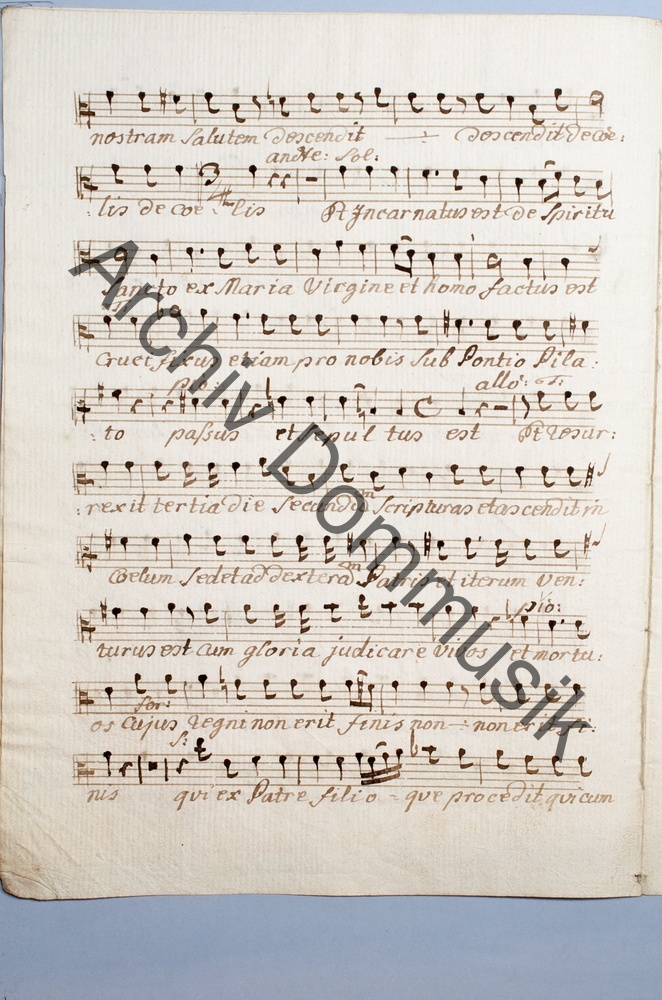 nostram salutem descendit descendit de coe:
andte: Sol:
: lis de coe - lis Et Incarnatus est de Spiritu
Sancto ex Maria Virgine et homo factus est
Crucifixus etiam pro nobis sub Pontio Pila:
pio: allo:
: to passus et sepul tus est Et resur:
: rexit tertia die secundum Scripturas et ascendit in
Coelum Sedet ad dexteram Patris et iterum ven:
pio:
turus est cum gloria judicare vivos et mortu:
for:
os cujus regni non erit finis non non erit fi:
nis qui ex Patre filio - que procedit qui cum
Archiv Dommusik